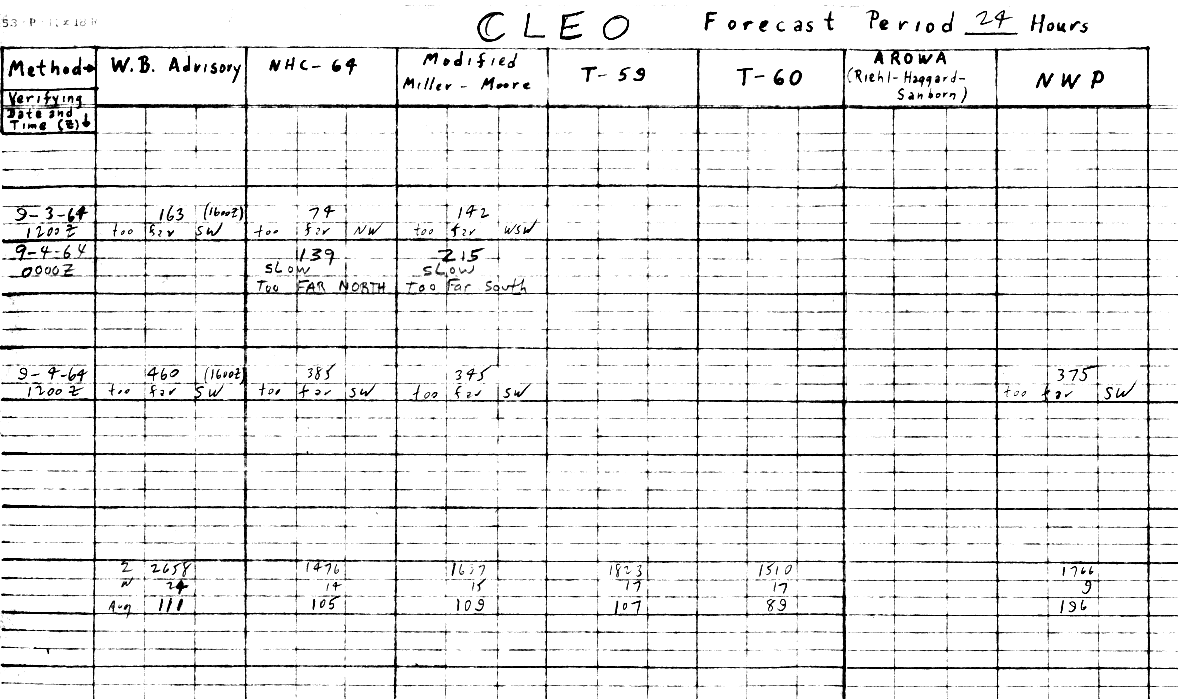 CLEO Forecast Period 24 Hours
Method→ W.B. Advisory NHC-64 Modified Miller-Moore T-59 T-60 AROWA (Riehl-Haggard-Sanborn) NWP
Verifying
Date and
Time (Z)↓
9-3-64 163 (1600Z) 74 142
1200Z too far SW too far NW too far WSW
9-4-64 139 215
0000Z SLOW SLOW
Too FAR NORTH Too Far South
9-4-64 460 (1600Z) 385 345 375
1200Z too far SW too far SW too far SW too far SW
Σ 2658 1476 1637 1823 1510 1766
N 24 14 15 17 17 9
Avg 111 105 109 107 89 196